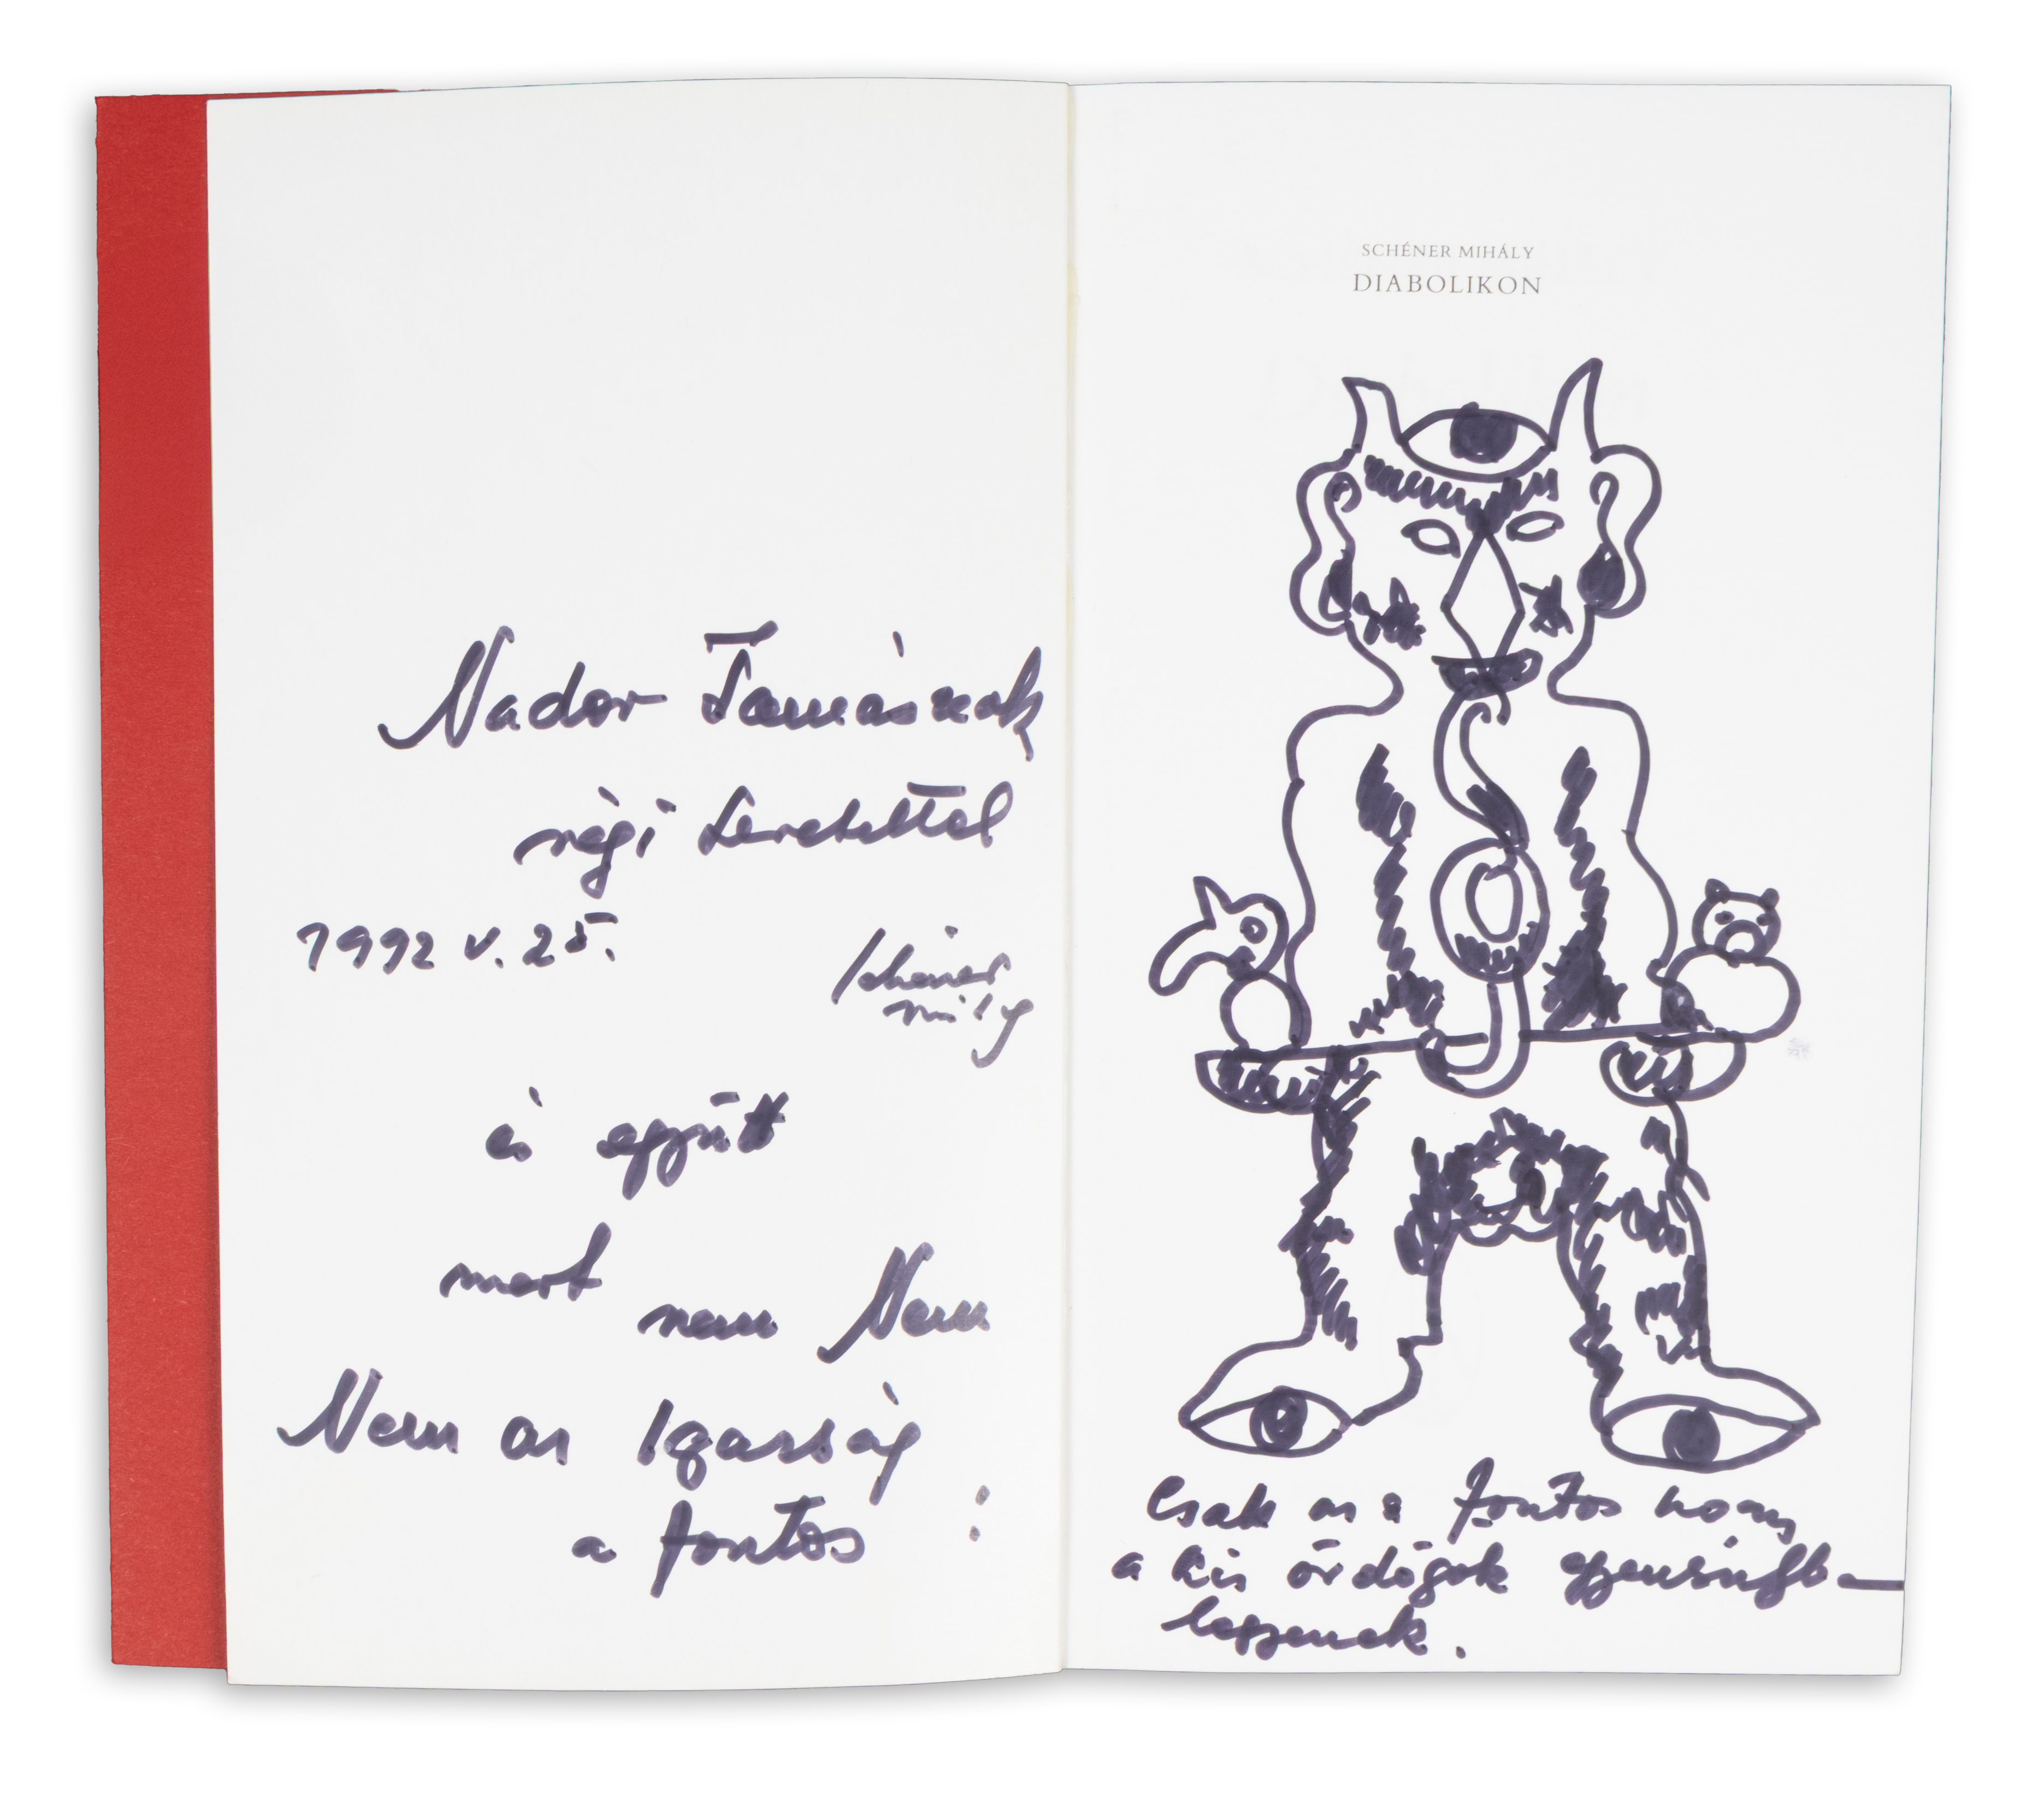 Nador Tamásnak
régi szeretettel
1992 V. 25.
Schéner
Mihály
és együtt
mert nem Nem
Nem az Igazság
a fontos :
SCHÉNER MIHÁLY
DIABOLIKON
Csak az a fontos hogy
a kis ördögök egyensúlyb—
legyenek.